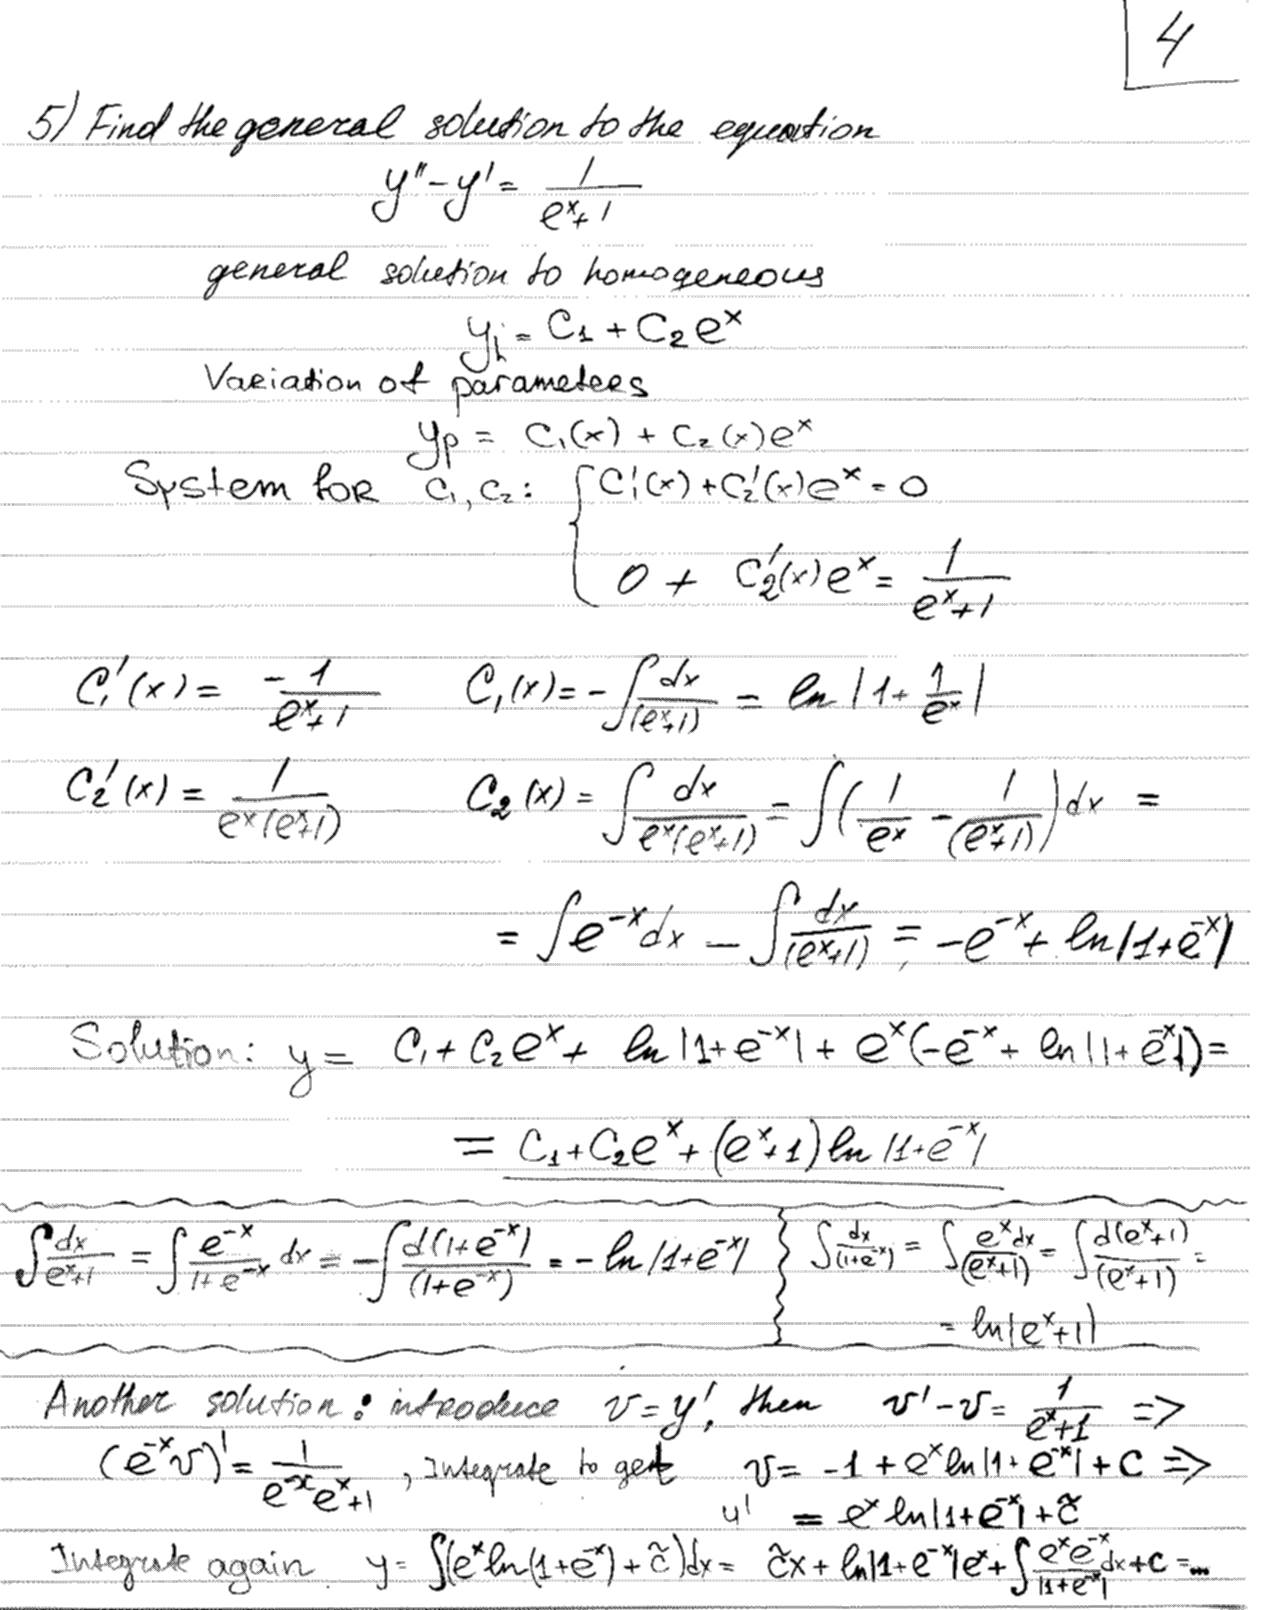 4
5) Find the general solution to the equation
y'' - y' = 1/(e^x + 1)
general solution to homogeneous
y_h = C_1 + C_2 e^x
Variation of parameters
y_p = C_1(x) + C_2(x)e^x
System for C_1, C_2: { C_1'(x) + C_2'(x)e^x = 0
0 + C_2'(x)e^x = 1/(e^x + 1)
C_1'(x) = -1/(e^x + 1) C_1(x) = -∫ dx/(e^x + 1) = ln|1 + 1/e^x|
C_2'(x) = 1/(e^x(e^x + 1)) C_2(x) = ∫ dx/(e^x(e^x + 1)) = ∫(1/e^x - 1/(e^x + 1))dx =
= ∫e^-x dx - ∫ dx/(e^x + 1) = -e^-x + ln|1 + e^-x|
Solution: y = C_1 + C_2 e^x + ln|1 + e^-x| + e^x(-e^-x + ln|1 + e^-x|) =
= C_1 + C_2 e^x + (e^x + 1) ln|1 + e^-x|
∫ dx/(e^x + 1) = ∫ e^-x/(1 + e^-x) dx = -∫ d(1 + e^-x)/(1 + e^-x) = -ln|1 + e^-x|
∫ dx/(1 + e^-x) = ∫ e^x dx/(e^x + 1) = ∫ d(e^x + 1)/(e^x + 1) =
= ln|e^x + 1|
Another solution: introduce v = y', then v' - v = 1/(e^x + 1) =>
(e^-x v)' = 1/(e^x e^x + 1), Integrate to get v = -1 + e^x ln|1 + e^-x| + C =>
y' = e^x ln|1 + e^-x| + C̃
Integrate again y = ∫(e^x ln(1 + e^-x) + C̃)dx = C̃x + ln|1 + e^-x|e^x + ∫ e^x e^-x/|1 + e^-x| dx + C = ...